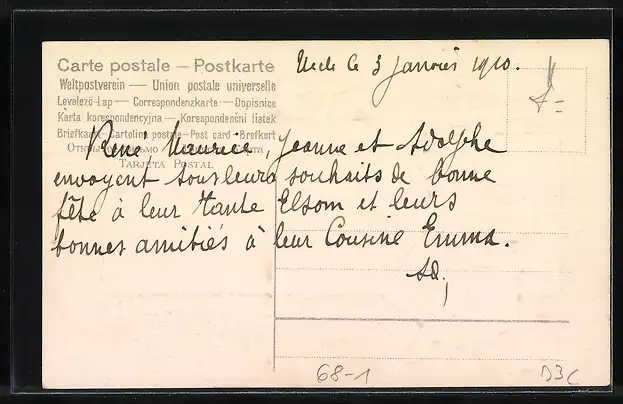 Carte postale — Postkarte
Weltpostverein — Union postale universelle
Levelező-Lap — Correspondenzkarte — Dopisnice
Karta korespondencyjna — Korespondenční listek
Briefkaart — Cartolina postale — Post card — Brefkort
Tarjeta Postal
Uccle le 3 janvier 1910.
René, Maurice, Jeanne et Adolphe
envoyent tous leurs souhaits de bonne
fête à leur Tante Elsom et leurs
bonnes amitiés à leur Cousine Emma.
68-1
D3C